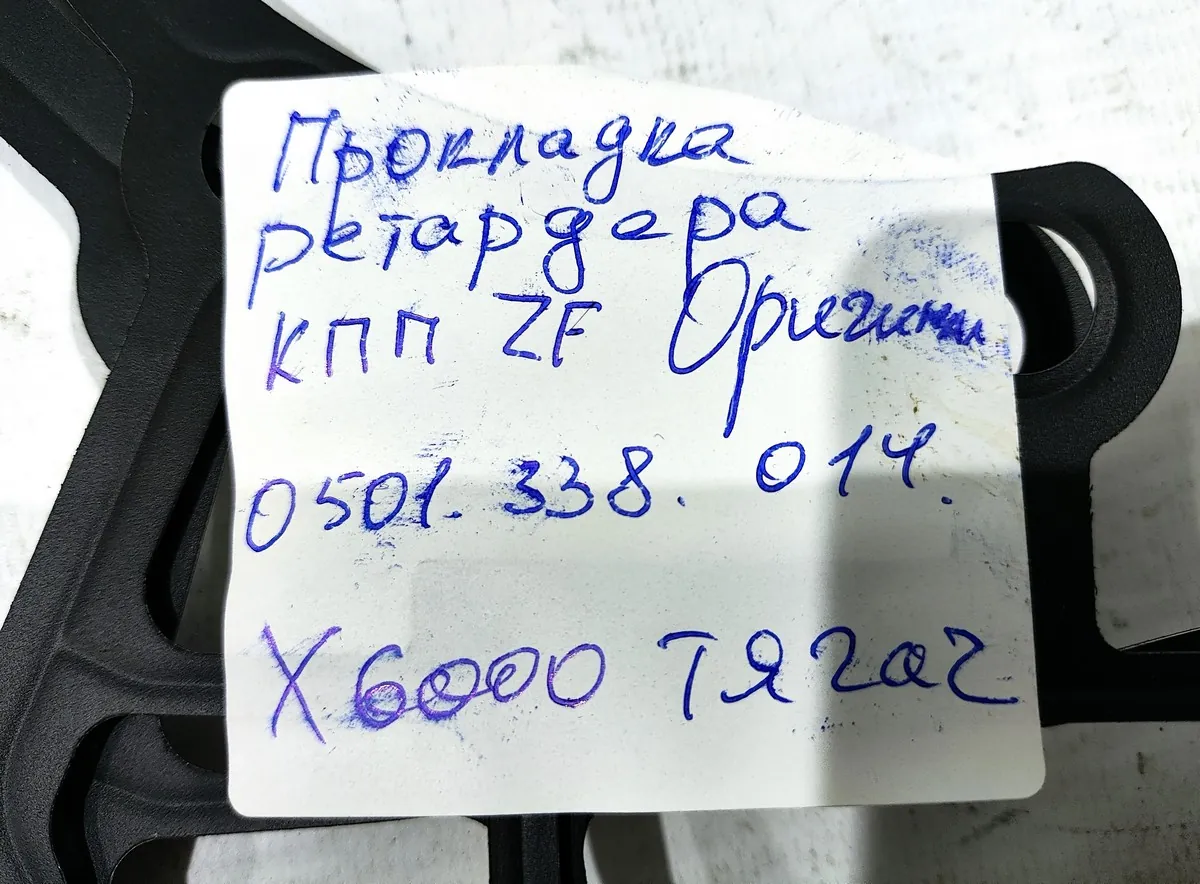 Прокладка
ретардера
КПП ZF Оригинал
0501. 338. 014.
X6000 Тягач